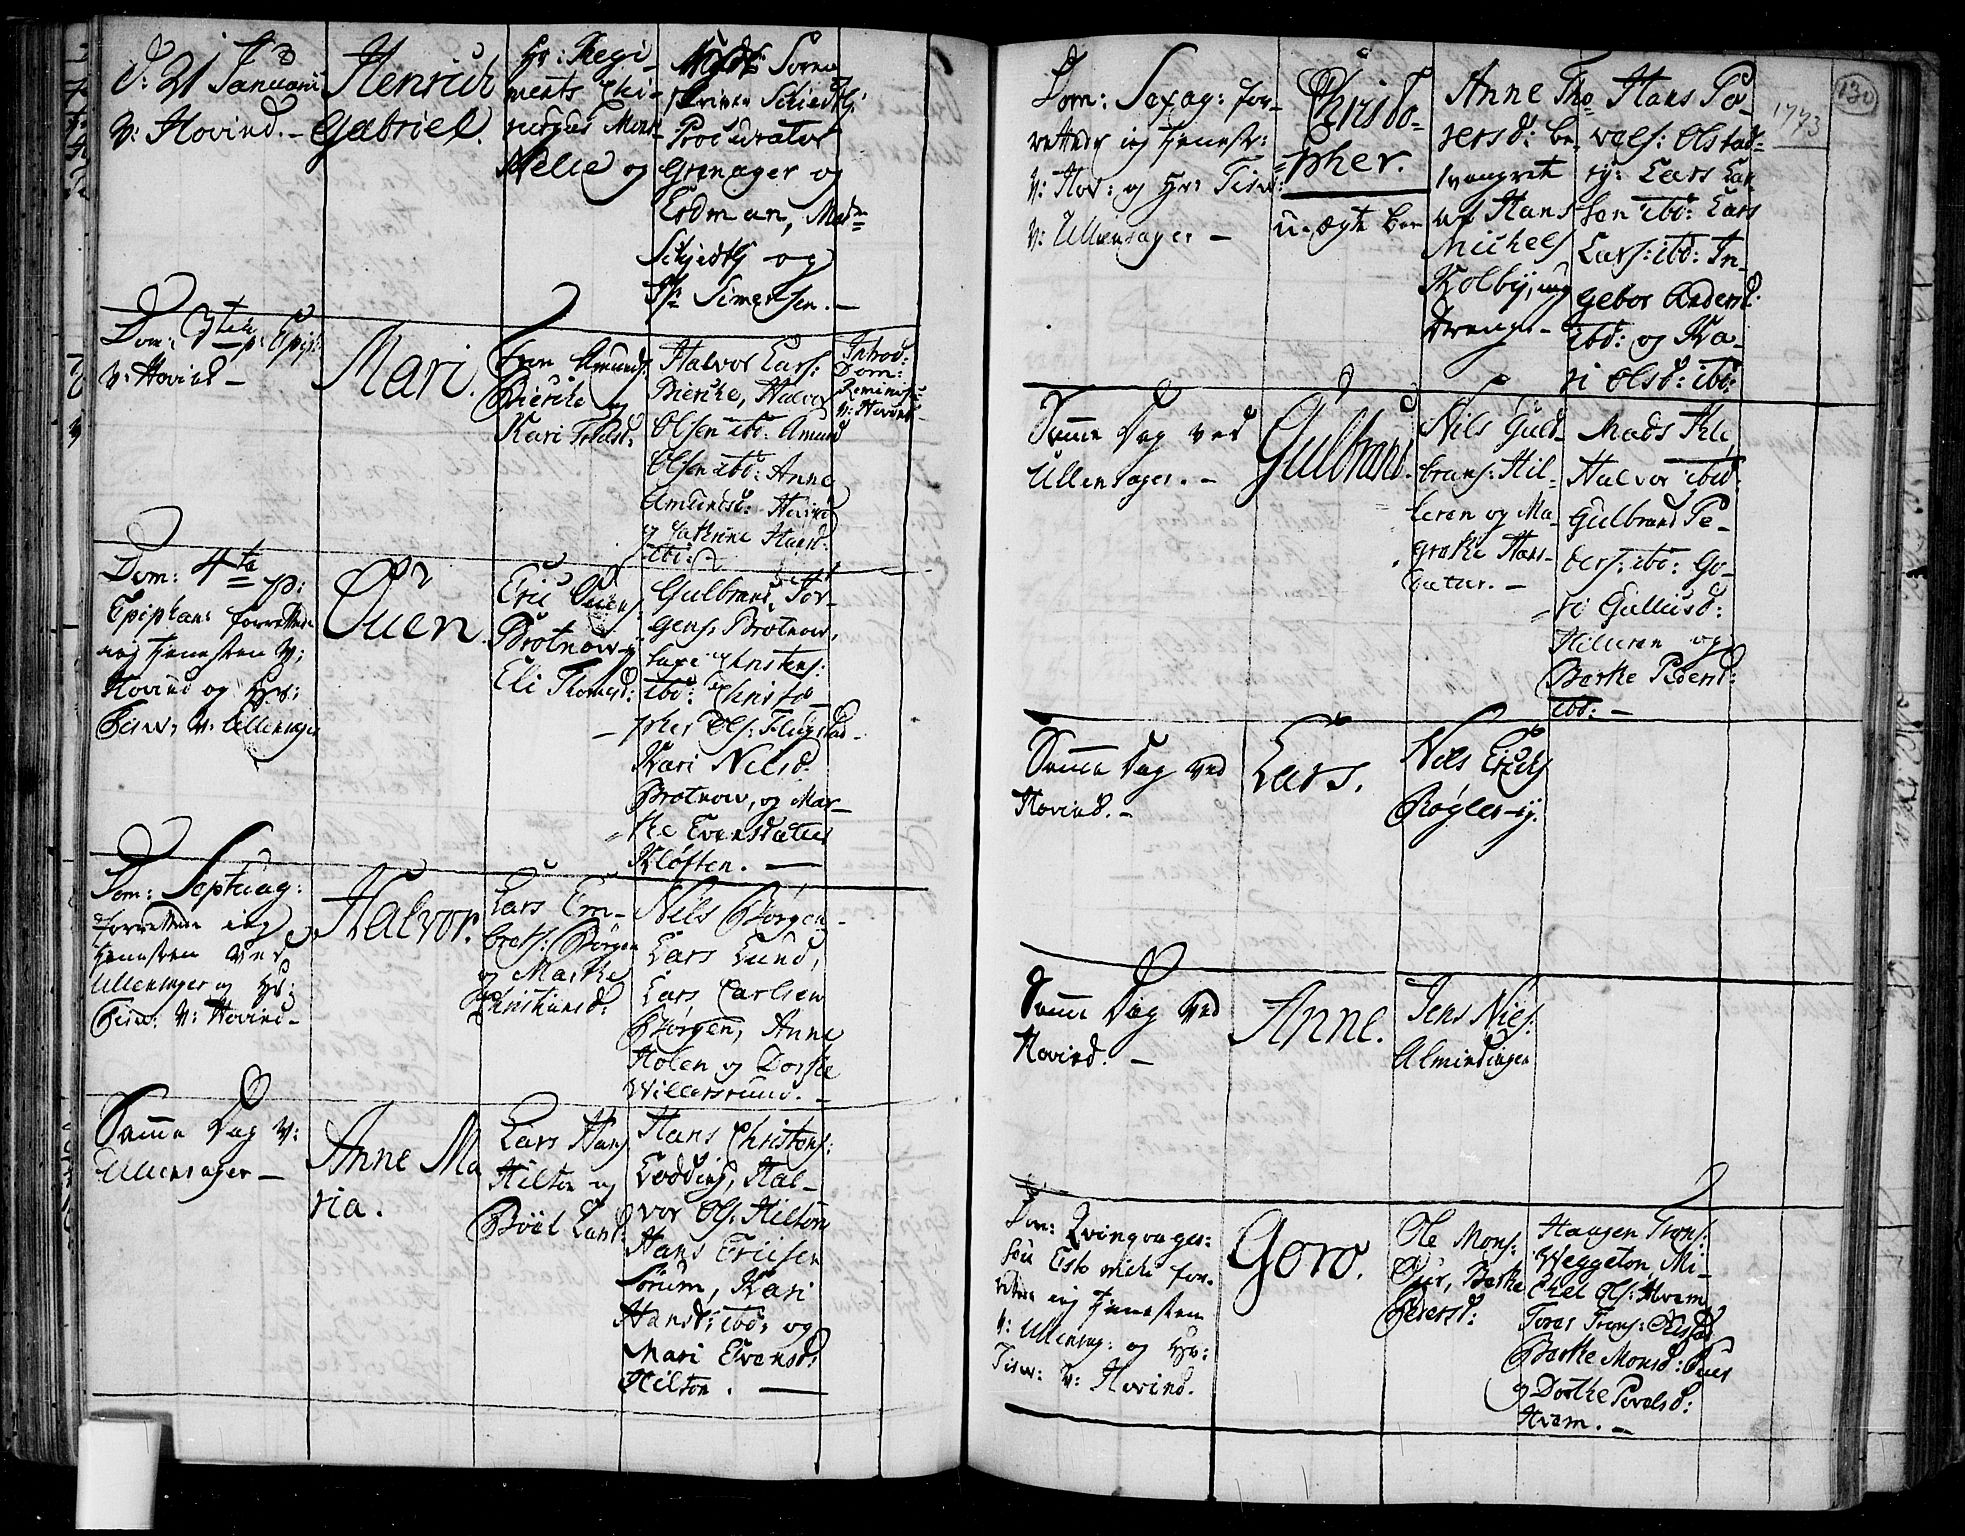 d: 21 Januarii
V: Hovind. –
Henrich
Gabriel.
Hr: Regi-
ments Chi-
rurgus Mons:
Nelle og
Soren
Schiedtz
Procurator
Grinager og
Erdman, Mad=
Schjedtz og
Simensen. –
Dom: 3tia p: Epiph:
V: Hovind –
Mari.
Iver Amunds:
Bierche og
Kari Trolsd:
Halvor Lars:
Bierche, Halvor
Olsen ibd: Amund
Olsen ibd: Anne
Amundsd: Hovind
og Cathrine Hansd:
ibd:
Introd:
Dom:
Reminisc:
V: Hovind
Dom: 4ta p:
Epiphan: forrettede
ieg tienesten V:
Hovind og Hr:
Tisw: V: Ullensager
Ouen.
Eric Ouens:
Brotnow og
Eli Thomesd:
Gulbrand Tor-
gens: Brotnow,
Christens:
ibd: Christo-
pher Ols: Flugstad –
Kari Nilsd
Brotnow, og Mar-
the Evensdatter
Kløften. –
Dom: Septuag:
forrettede ieg
tienesten ved
Ullensager og Hr:
Tisw: V: Hovind –
Halvor.
Lars Em-
brets: Børgen
og Marthe
Christiansd:
Nils Børgen
Lars Lund,
Lars Carlsen
Børgen, Anne
Holen og Dorthe
Willersrund. –
Samme Dag V:
Ullensager –
Anne Ma
ria.
Lars Hans:
Hilton og
Böel Larsd:
Hans Christens:
Lodding, Hal-
vor Ols: Hilton
Hans Ericsen
Sørum, Kari
Hansd: ibd: og
Mari Evensd:
Hilton. –
130
1773
Dom: Sexag: for-
rettede ieg tienest:
V: Hov: og Hr: Tisw:
V: Ullensager –
Christo-
pher.
u-ægte barn
Anne Tho-
resd: be-
svangret
af Hans
Michels
Kolbye, ung
Dreng. –
Hans Po-
vels: Olstad-
ey: Lars Lar-
sen ibd: Lars
Lars: ibd: In-
gebor Andersd:
ibd: og Ka-
ri Olsd: ibd:
Samme Dag ved
Ullensager. –
Gulbrand.
Nils Guld-
brans: Hil-
leren og Ma-
grethe Hans-
datter. –
Mads
Halvor ibid:
Gulbrand Pe-
ders: ibd: Go-
ri Gullusd:
Hilleren og
Berthe Pedersd:
ibd: –
Samme Dag ved
Hovind. –
Lars.
Nils Erichs
Røgler-ey.
Samme Dag ved
Hovind. –
Anne.
Jens Niels:
Almindingen
Dom: Qvinqvages:
seu Esto mihi for-
rettede ieg tienesten
V: Ullensag: og Hr:
Tisw: V: Hovind.
Goro.
Ole Mons:
Berthe
Pedersd:
Haagen Trons:
Weggeton, Mi-
chel Ols: Hvam
Tores Trons:
Berthe Monsd:
og Dorthe Povelsd:
Hvam. –